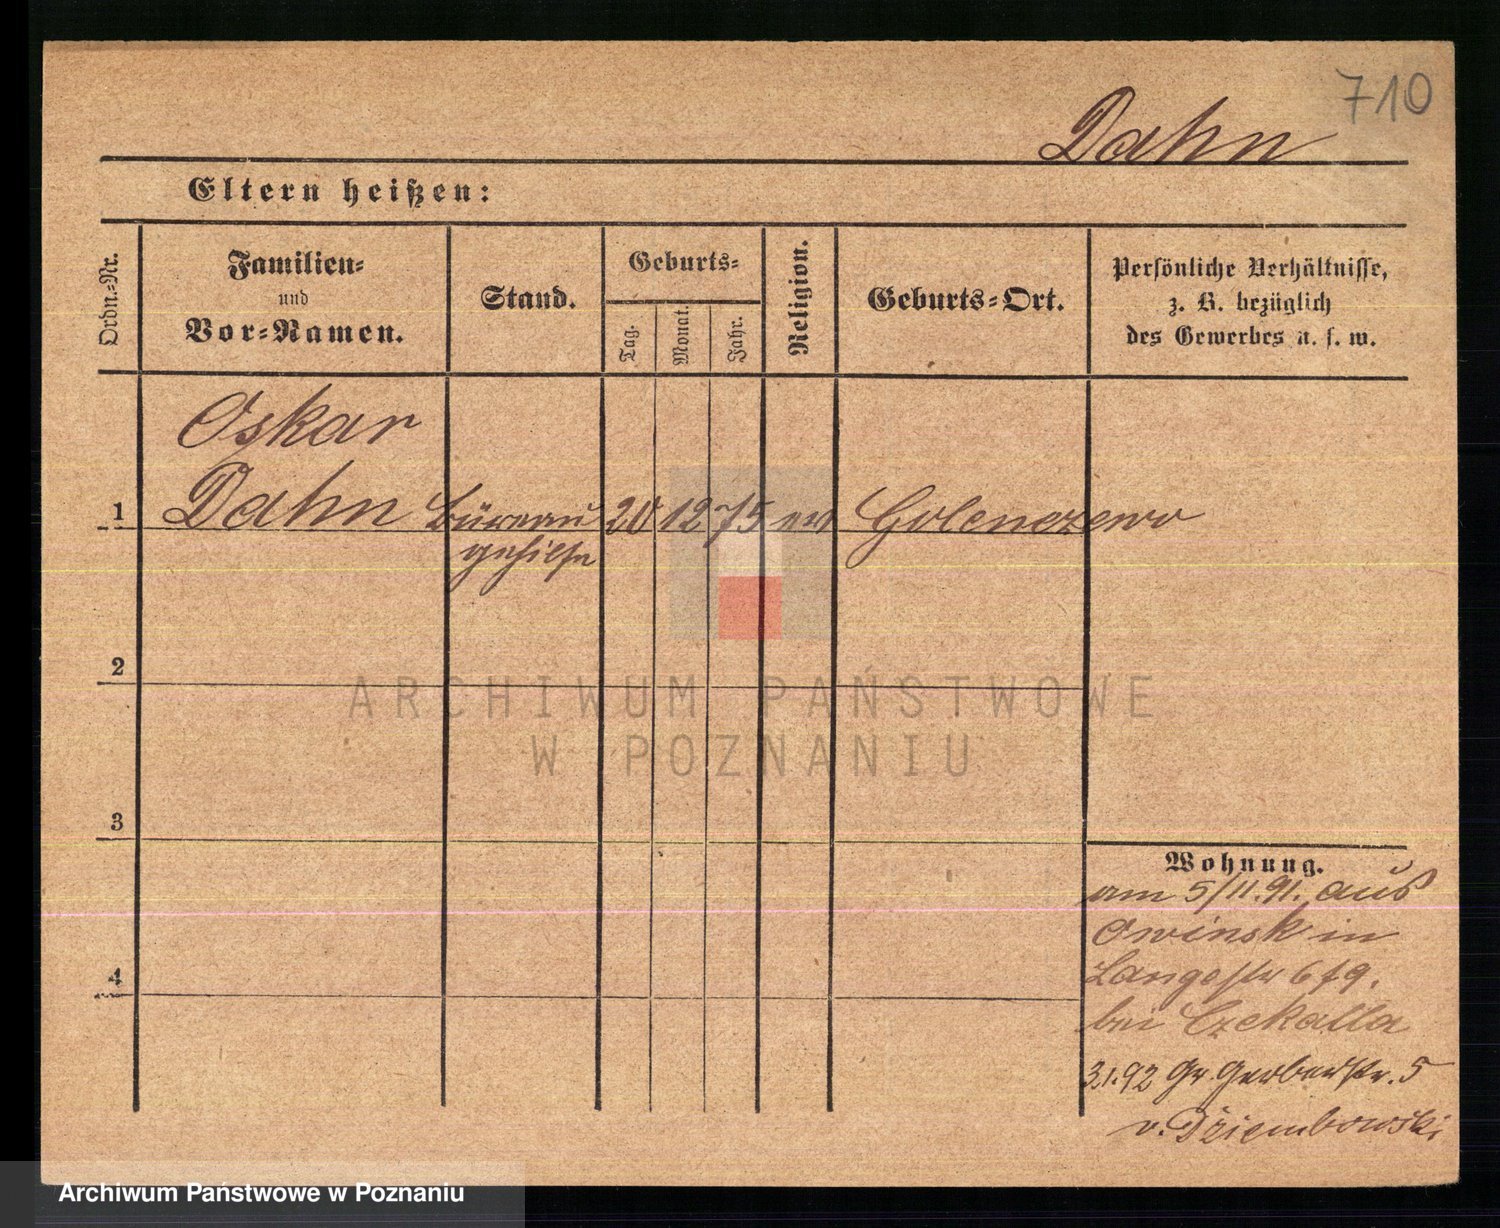 710
Dahn
Eltern heißen:
Ordn.-Nr.
Familien-
und
Vor-Namen.
Stand.
Geburts-
Tag.
Monat.
Jahr.
Religion.
Geburts-Ort.
Persönliche Verhältnisse,
z. B. bezüglich
des Gewerbes u. s. w.
Oskar
1 Dahn Büreau 20 12 75 ev Golenczewo
gehilfe
2
ARCHIWUM PAŃSTWOWE
W POZNANIU
3
Wohnung.
am 5/11.91. aus
Owinsk in
Langestr 6/9.
bei Czekalla
3.1.92 Gr. Gerberstr. 5
v. Dziembowski
4
Archiwum Państwowe w Poznaniu